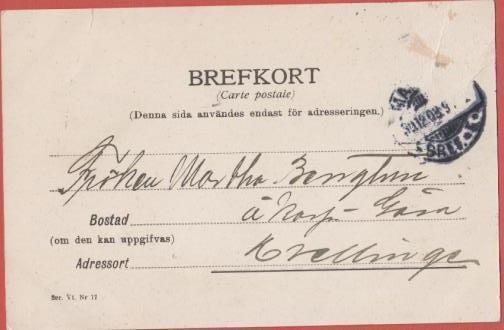 BREFKORT
(Carte postale)
(Denna sida användes endast för adresseringen.)
Fröken Martha Bengtson
Bostad
(om den kan uppgifvas)
Adressort
Kvellinge
Ser. VI. Nr 12